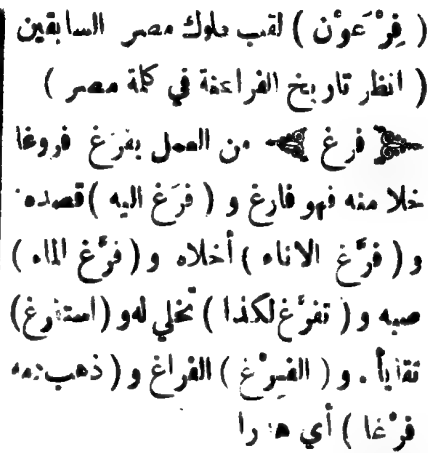 ( فِرْعَوْن ) لقب ملوك مصر السابقين
( انظر تاريخ الفراعنة في كلمة مصر )
﴿ فرغ ﴾ من العمل يفرَغ فروغا
خلا منه فهو فارغ و ( فرَغ اليه ) قصده
و ( فرَّغ الاناء ) أخلاه و ( فرَّغ الماء )
صبه و ( تفرَّغ لكذا ) تخلي له و ( استفرغ )
تقايأ . و ( الفِرْغ ) الفراغ و ( ذهب دمه
فرْغا ) أي هدرا